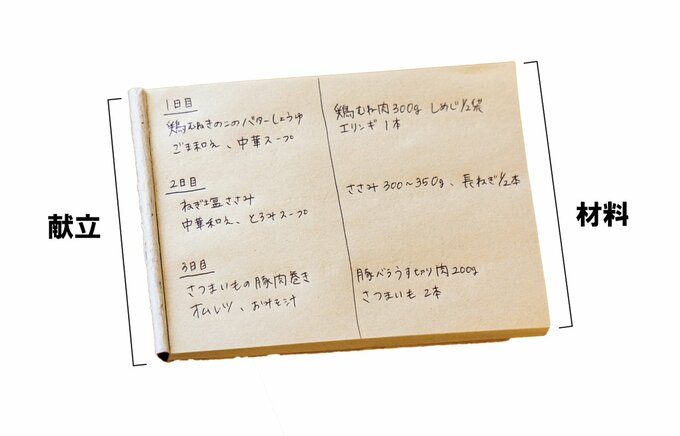 献立
1日目
鶏むねきのこのバターしょうゆ
ごま和え、中華スープ
2日目
ねぎ塩ささみ
中華和え、とろみスープ
3日目
さつまいもの豚肉巻き
オムレツ、おみそ汁
鶏むね肉300g しめじ1/2袋
エリンギ1本
ささみ 300〜350g、長ねぎ1/2本
豚バラうす切り肉200g
さつまいも 2本
材料